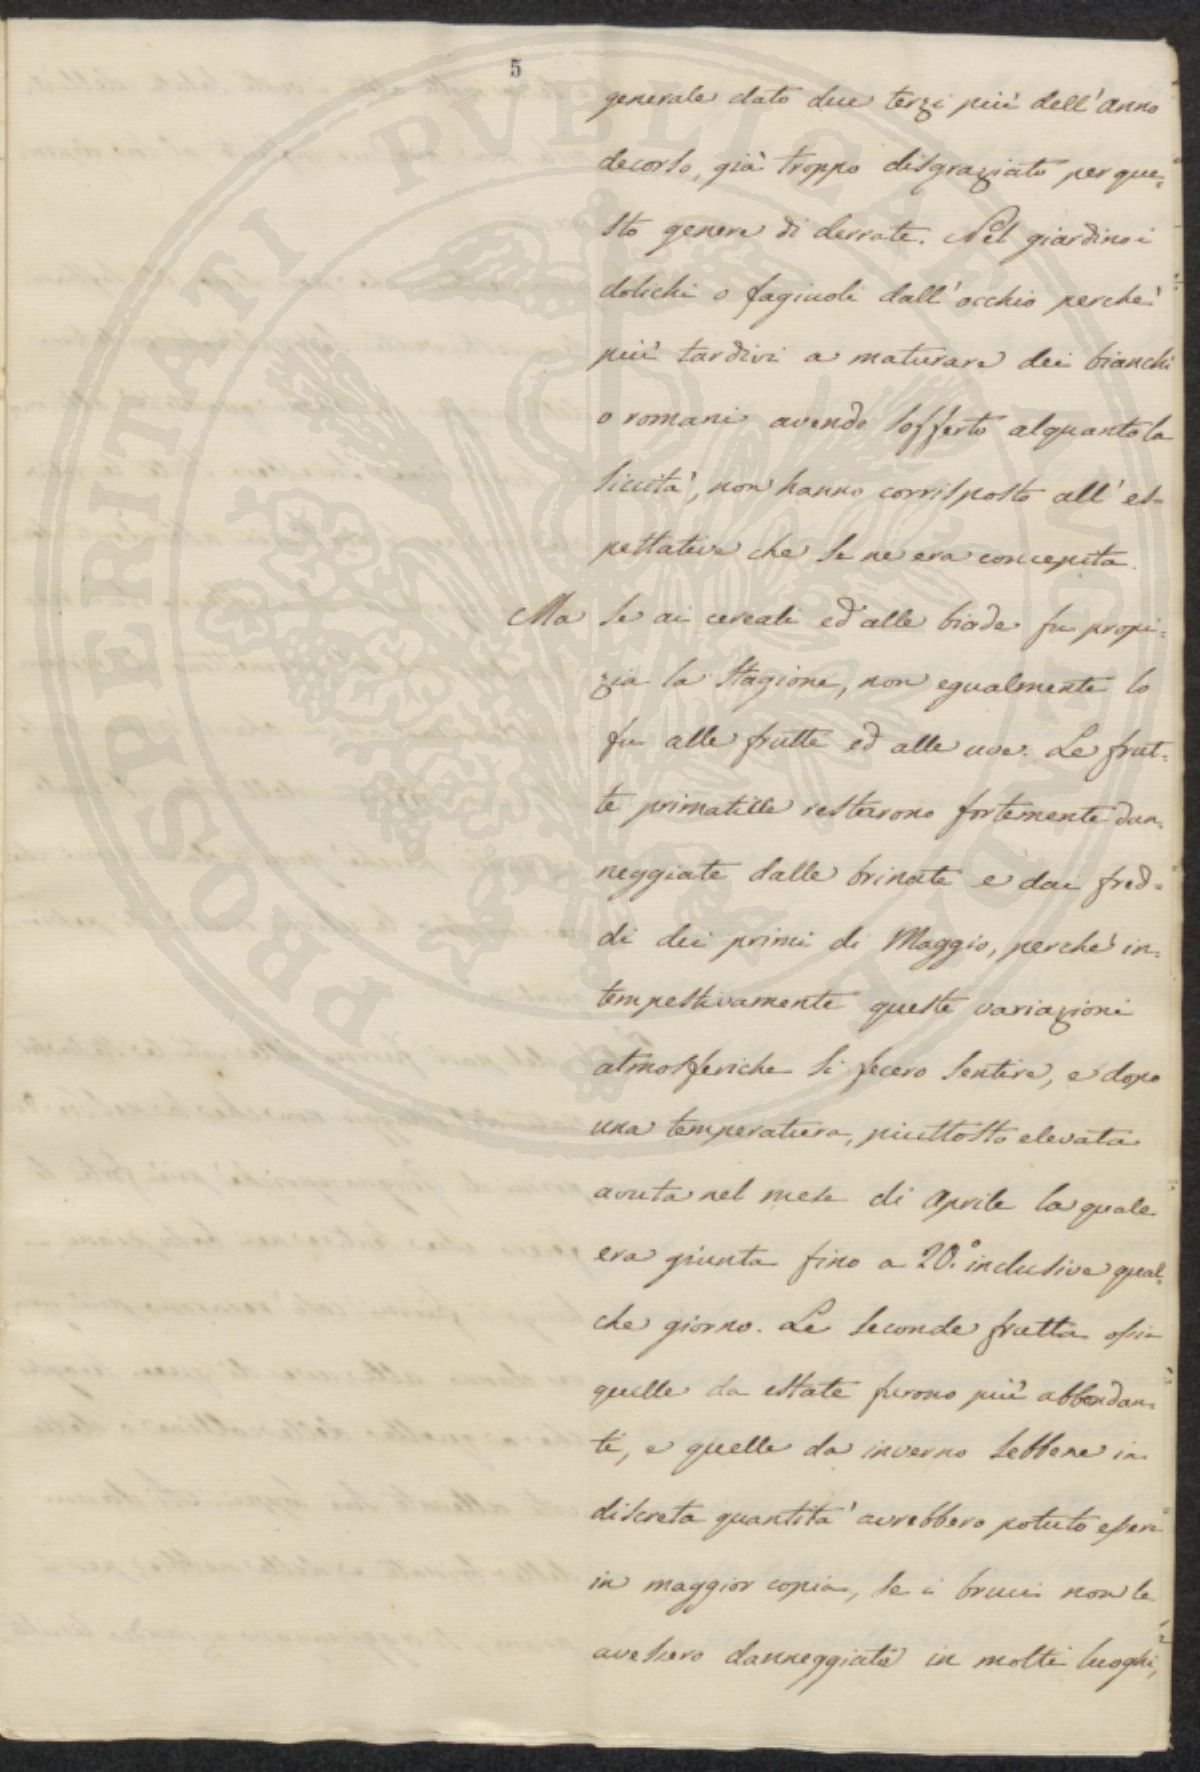 5
generale dato due terzi più dell'anno
decorso, già troppo disgraziato per que=
sto genere di derrate. Nel giardino i
dolichi o fagiuoli dall'occhio perchè
più tardivi a maturare dei bianchi
o romani avendo sofferto alquanto la
siccità, non hanno corrisposto all'es=
pettativa che se ne era concepita.
Ma se ai cereali ed alle biade fu propi=
zia la stagione, non egualmente lo
fu alle frutte ed alle uve. Le frut=
te primaticce restarono fortemente dan=
neggiate dalle brinate e dai fred=
di dei primi di Maggio, perchè in=
tempestivamente queste variazioni
atmosferiche si fecero sentire, e dopo
una temperatura, piuttosto elevata
avuta nel mese di Aprile la quale
era giunta fino a 20.° inclusive qual=
che giorno. Le seconde frutta ossia
quelle da estate furono più abbondan=
ti, e quelle da inverno sebbene in
discreta quantità avrebbero potuto essere
in maggior copia, se i bruci non le
avessero danneggiate in molti luoghi,
PROSPERITATI PUBLICAE AUGENDAE